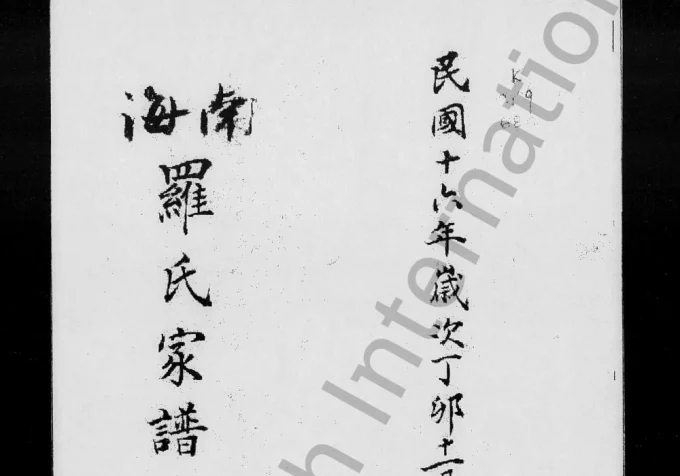 民國十六年歲次丁卯十一
南海
羅氏家譜
K
h International